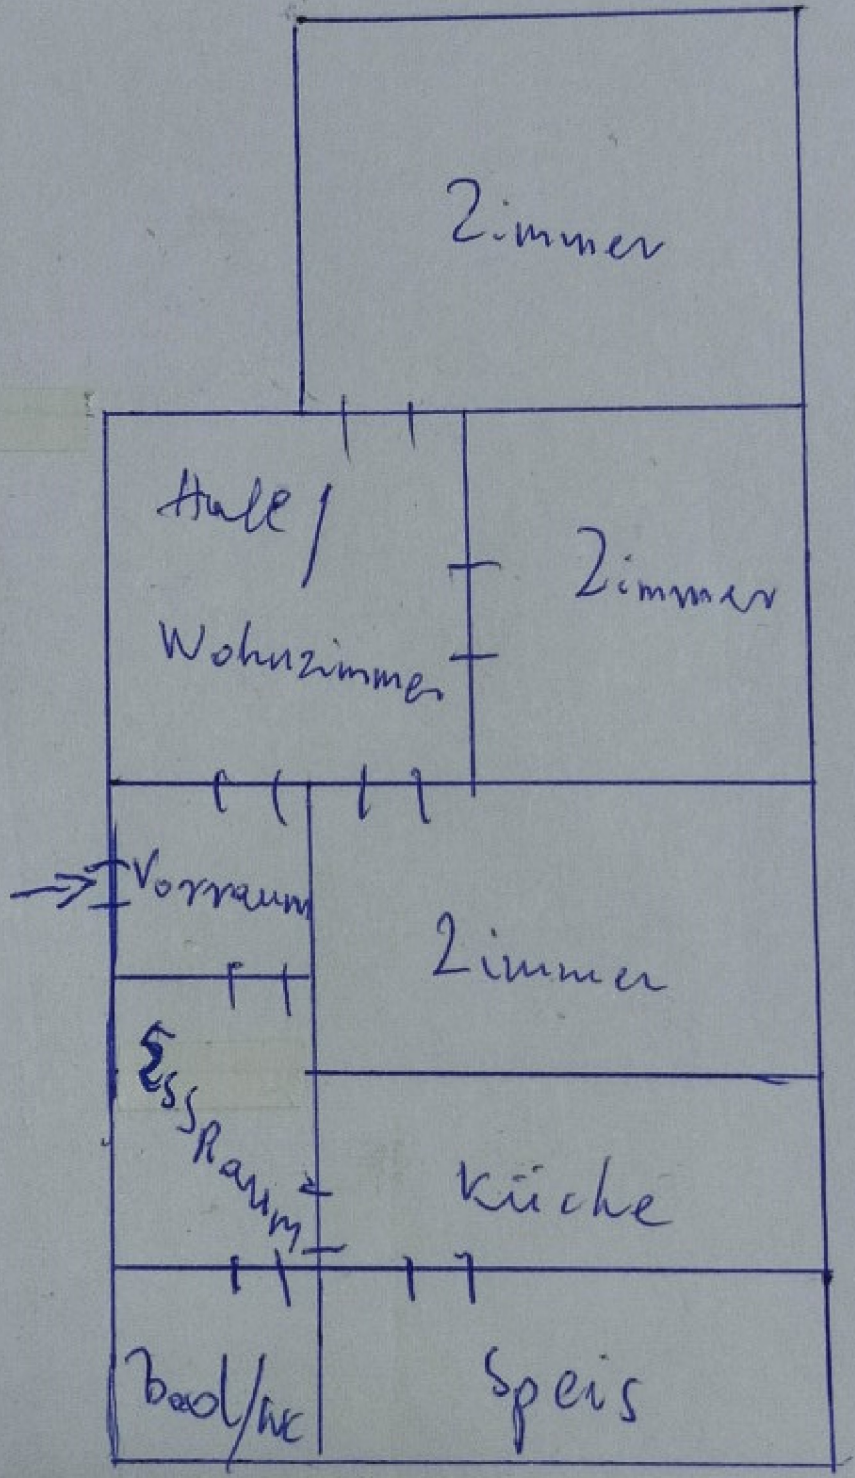 Zimmer
Halle/
Wohnzimmer
Zimmer
Vorraum
Zimmer
EssRaum
Küche
Bad/WC
Speis